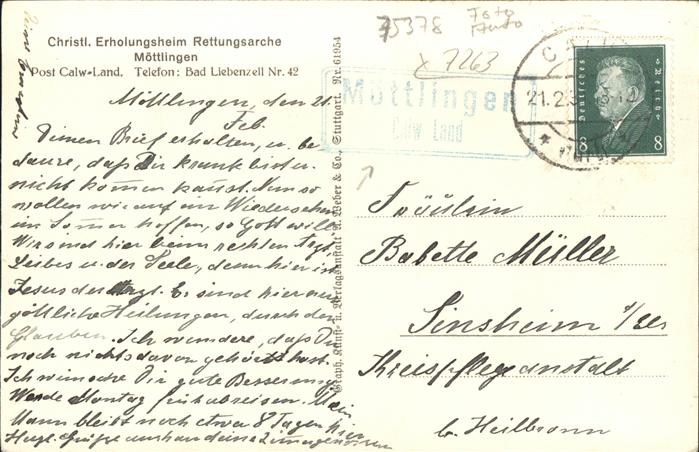 Christl. Erholungsheim Rettungsarche
Möttlingen
Post Calw-Land. Telefon: Bad Liebenzell Nr. 42
Möttlingen, den 21.
Feb.
Deinen Brief erhalten, u. be
daure, daß Du krank bist u.
nicht kommen kannst. Nun so
wollen wir auf ein Wiedersehen
im Sommer hoffen, so Gott will.
Wir sind hier beim rechten Arzt
Leibes u. der Seele, denn hier ist
Jesus der Arzt. Es sind hier
göttliche Heilungen, durch den
Glauben. Ich wundere, daß Du
noch nichts davon gehört hast.
Ich wünsche Dir gute Besserung
Werde Montag früh abreisen. Mein
Mann bleibt noch etwa 8 Tage hier
Herzl. Grüße auch an deine Zimmergenossen
Graph. Kunst- u. Verlagsanstalt u. Weber & Co., Stuttgart. Nr. 61954
75378
x 7263
Möttlingen
Calw Land
21.2.3
Deutsches Reich
8 8
Fräulein
Babette Müller
Sinsheim a/Els
Kreispflegeanstalt
b. Heilbronn